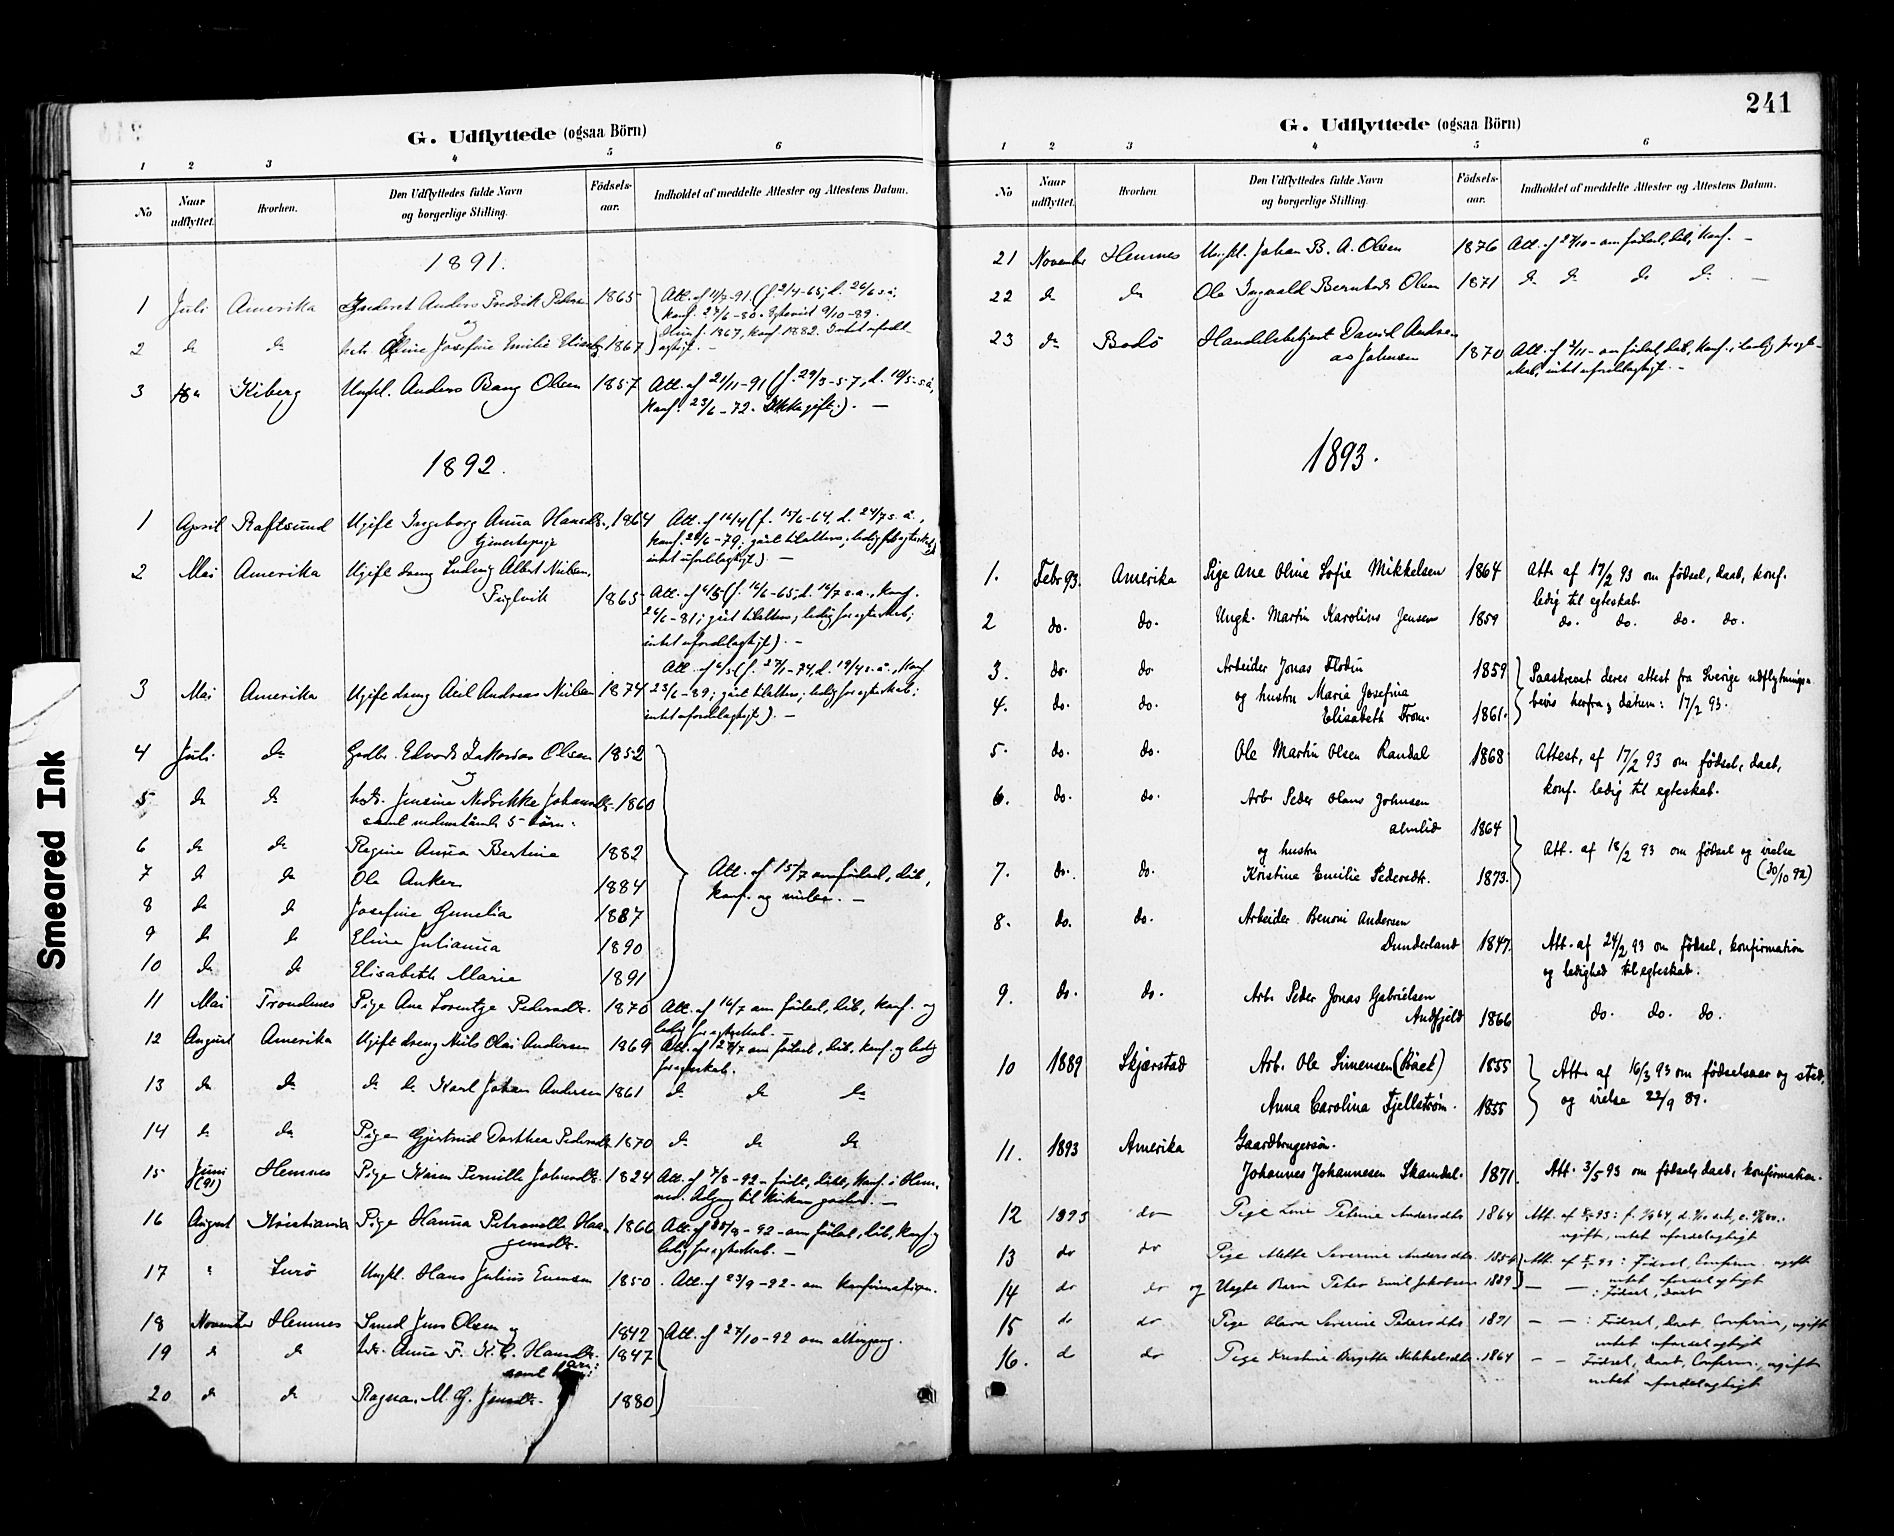 Smeared Ink
G. Udflyttede (ogsaa Börn)
1 2 3 4 5 6
No
Naar udflyttet.
Hvorhen.
Den Udflyttedes fulde Navn og borgerlige Stilling.
Födsels-aar.
Indholdet af meddelte Attester og Attestens Datum.
1891.
1 Juli Amerika Anders Fredrik 1865 Att. af 11/7-91 (f. 2/4-65, d. 26/6 s.å.,
konf. 27/6-80. 9/10-89.
2 do do Josefine Emilie 1867 1867, konf. 1882. Intet ufordel-
agtigt. -
3 Kiberg Ungkl. Anders Bang Olsen 1857 Att. af 21/11-91 (f. 29/3-57, d. 10/5 s.å.,
konf. 23/6-72. Ikke gift.). -
1892.
1 April Raftsund Ugift Ingeborg Anna Hansdr., 1864 Att. af 16/4 (f. 15/6-64, d. 24/7 s.å.,
tjenestepige konf. 26/6-79; gaat tilalters; ledig for egteskab;
intet ufordelagtigt) -
2 Mai Amerika Ugift dreng Ludvig Albert Nielsen,
Fuglvik 1865 Att. af (f. 16/6-65, d. 16/7 s.å., konf.
26/6-81; gaat tilalters; ledig for egteskab;
intet ufordelagtigt). -
3 Mai Amerika Ugift dreng Axel Andreas Nielsen 1874 Att. af (f. 27/1-74, d. 19/4 s.å., konf
23/6-89; gaat tilalters; ledig for egteskab;
intet ufordelagtigt). -
4 Juli do Gaardbr. Edvard Zakarias Olsen 1852
og
5 do do hstr. Jensine Johansdr. 1860
samt nedenstående 5 börn:
6 do do Regine Anna Bertine 1882
7 do do Ole Anker 1884 Att. af 15/7 om födsel, dåb,
8 do do Josefine Gunelia 1887 konf. og vielse. -
9 do do Eline Julianna 1890
10 do do Elisabeth Marie 1891
11 Mai Trondenes Pige Ane Lorentze Pedersdr. 1870 Att. af 16/7 om födsel, dåb, konf. og
ledig for egteskab. -
12 August Amerika Ugift dreng Nils Olai Andersen 1869 Att. af 28/7 om födsel, dåb, konf. og ledig
for egteskab.
13 do do do do Karl Johan Andersen 1861 do do do
14 do do Pige Gjertrud Dorthea Pedersdr. 1870 do do do
15 Juni (91) Hemnes Pige Karen Pernille Johnsdr. 1824 Att. af 7/8-92 - födt, döbt, konf. i Hem-
nes. Adgang til kirkens goder. -
16 August Kristiania Pige Hanna Petronelle Haa-
gensdr. 1866 Att. af -92 - om födsel, dåb, konf. og
ledig for egteskab. -
17 " Lurö Ungkl. Hans Julius Evensen 1850 Att. af 23/9-92 - om konfirmation.
18 November Hemnes Smed Jens Olsen og 1842 Att. af 27/10-92 om altergang.
19 do do hstr. Anne F. K. C. Hansdr. 1847
samt barn:
20 do do Ragna M. G. Jensdr. 1880
241
G. Udflyttede (ogsaa Börn)
1 2 3 4 5 6
No
Naar udflyttet.
Hvorhen.
Den Udflyttedes fulde Navn og borgerlige Stilling.
Födsels-aar.
Indholdet af meddelte Attester og Attestens Datum.
21 November Hemnes Ungkl. Johan B. A. Olsen 1876 Att. af 27/10 - om födsel, dåb, konf. -
22 do do Ole Ingvald Bernhard Olsen 1871 do do do do -
23 do Bodö Handelsbetjent David Andre-
as Johnsen 1870 Att. af 3/11 - om födsel, dåb, konf., ledig for egte-
skab, intet ufordelagtigt. -
1893.
1. Febr 93. Amerika Pige Ane Oline Sofie Mikkelsen 1864 Att. af 17/2 93 om födsel, daab, konf.
ledig til egteskab.
2 do. do. Ungk. Martin Karolius Jensen 1859 do. do. do. do.
3. do. do Arbeider Jonas Flodin 1859 Paaskrevet deres attest fra Sverige udflytnings-
og hustru Maria Josefina
4. do. do. Elisabeth From. 1861. bevis herfra, datum: 17/2 93.
5. do. do. Ole Martin Olsen Randal 1868 Attest, af 17/2 93 om födsel, daab,
konf. ledig til egteskab.
6. do. do. Arb. Peder Olaus Johnsen
Almlid 1864
og hustru Att. af 18/2 93 om födsel og vielse
7. do. do. Kristine Emilie Pedersdtr. 1873. (30/10 92)
8. do. do. Arbeider Benoni Andersen
Dunderland 1847. Att. af 24/2 93 om födsel, konfirmation
og ledighed til egteskab.
9. do. do. Arb. Peder Jonas Gabrielsen
Andfjeld 1866 do. do. do.
10 1889 Skjerstad Arb. Ole Simensen (Röaet) 1855 Att. af 16/3 93 om födselsaar og sted,
Anna Carolina Fjellström. 1855 og vielse 22/9 89.
11. 1893 Amerika Gaardbrugersön.
Johannes Johannesen Skamdal. 1871. Att. 3/5 93 om födsel, daab, konfirmation.
12 1893 do Pige Line Petrine Andersdtr 1864 Att.
ugift, intet ufordelagtigt
13 do do Pige Mette Severine Andersdtr. 1854 Att. : Födsel, Conferm. ugift
intet ufordelagtigt
14 do do og Uægte Barn Peter Emil Jakobsen 1889 - - : Födsel, daab
15 do do Pige Olava Severine Pedersdtr 1871 - - : Födsel, Daab, Conferm, ugift
intet ufordelagtigt
16. do do Pige Kristine Birgitte Mikkelsdtr. 1864 - - Födsel, Daab, Conferm., ugift
intet ufordelagtigt